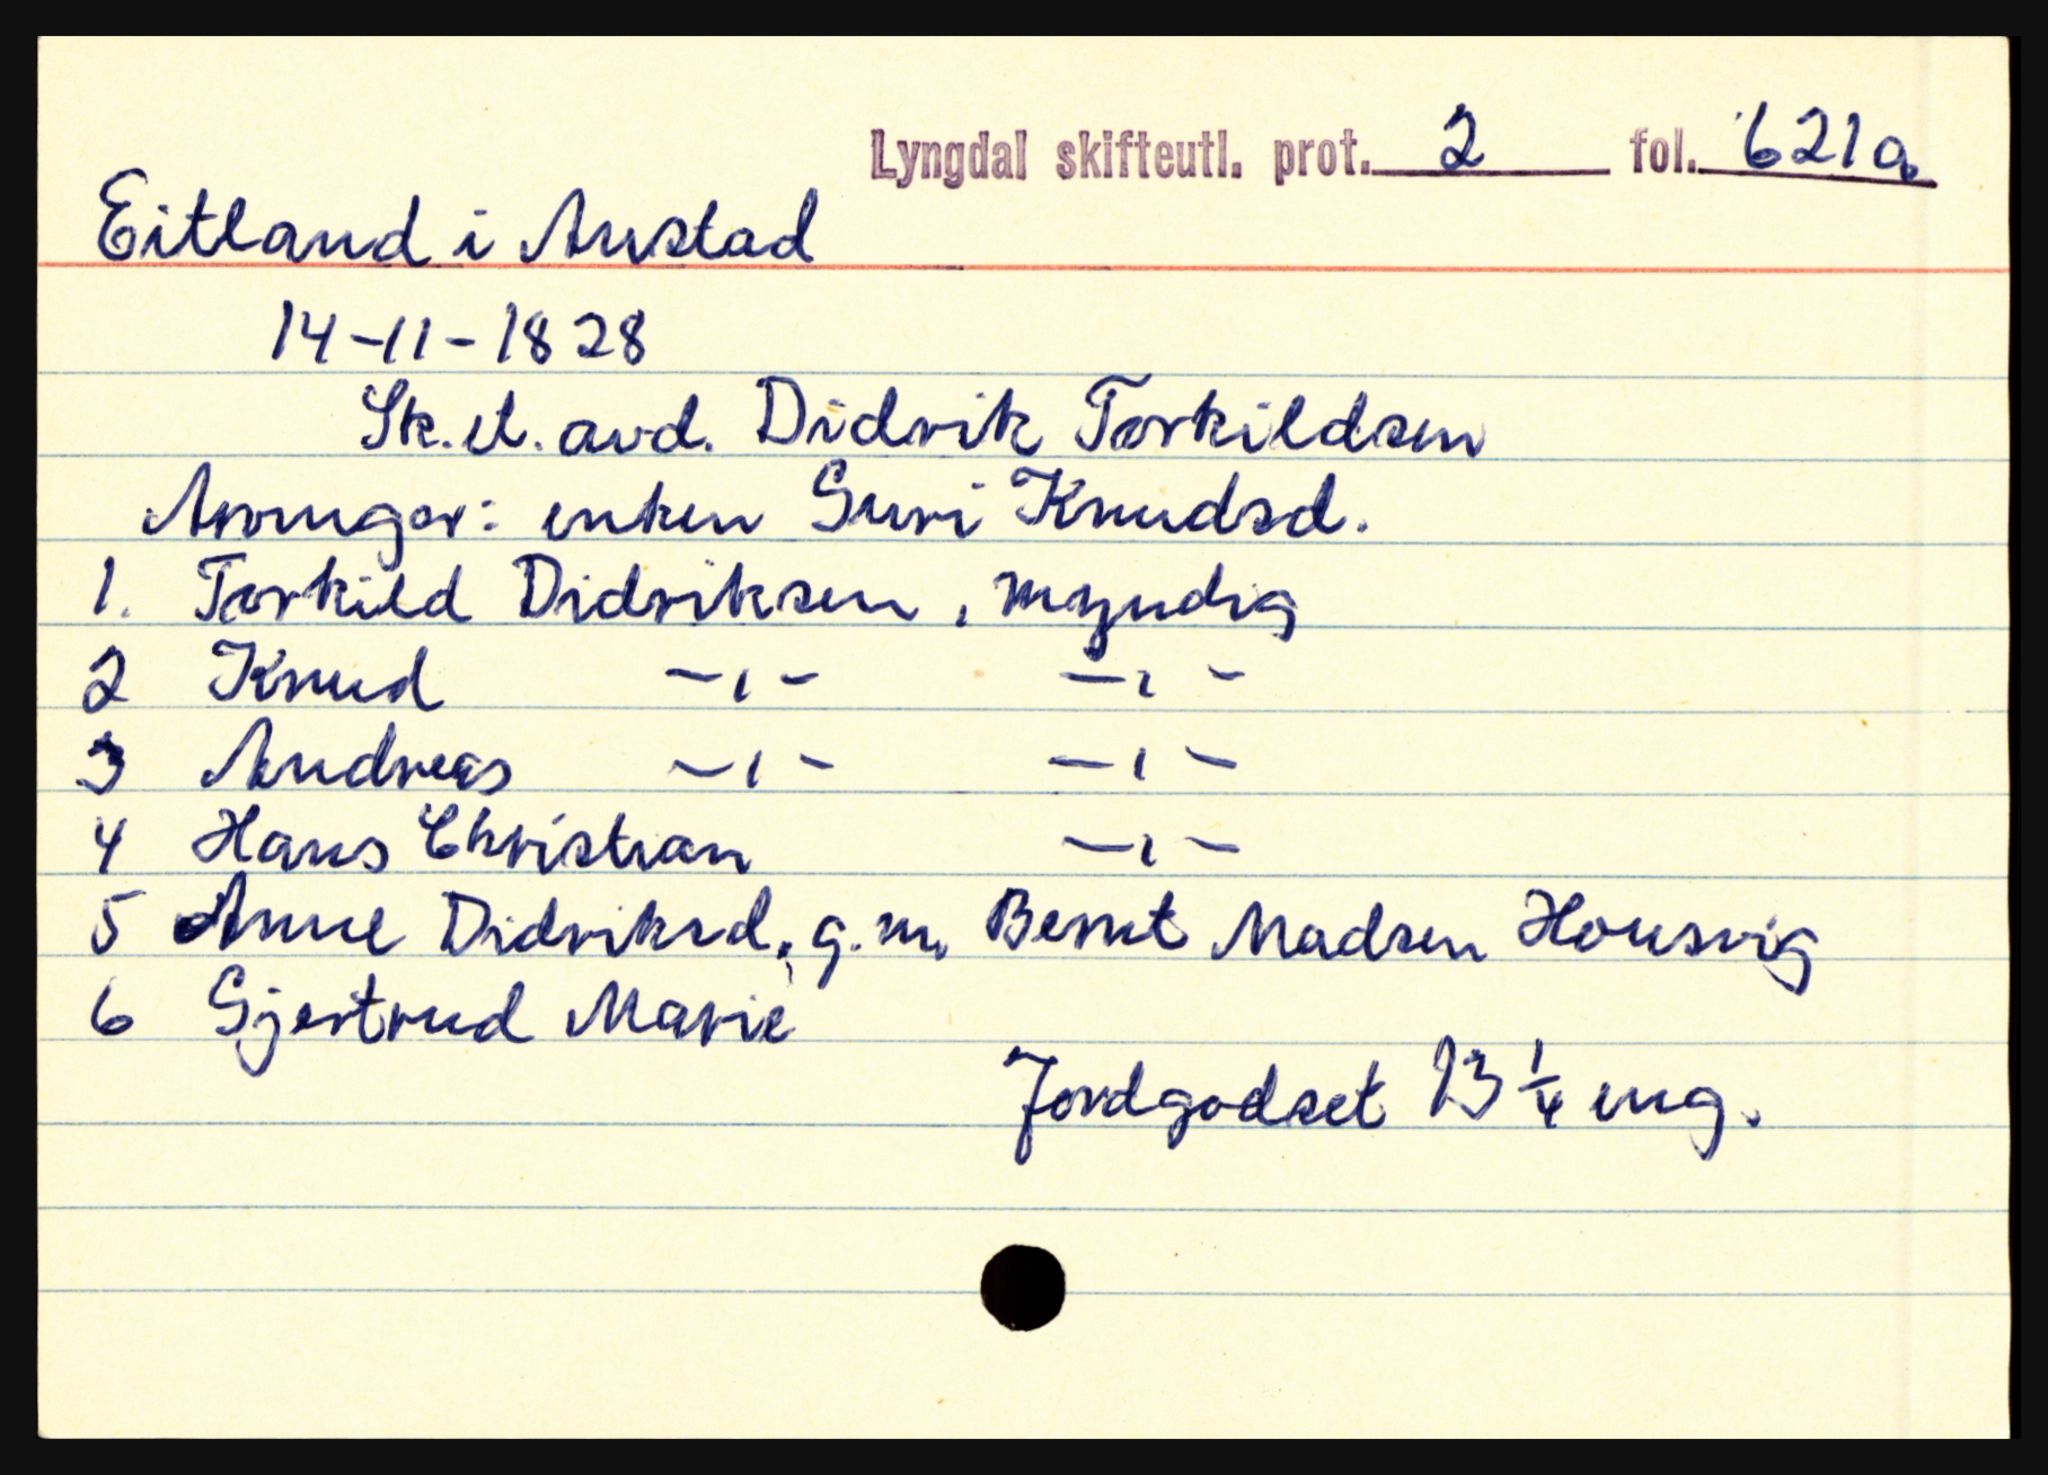 Lyngdal skifteutl. prot. 2 fol. 621a
Eitland i Austad
14-11-1828
Sk.et. avd. Didrik Torkildsen
Arvinger: enken Guri Knudsd.
1. Torkild Didriksen, myndig
2 Knud -"- -"-
3 Andreas -"- -"-
4 Hans Christian -"-
5 Anne Didriksd, g.m. Bernt Madsen Housvig
6 Gjertrud Marie
Jordgodset 13 1/4 eng.